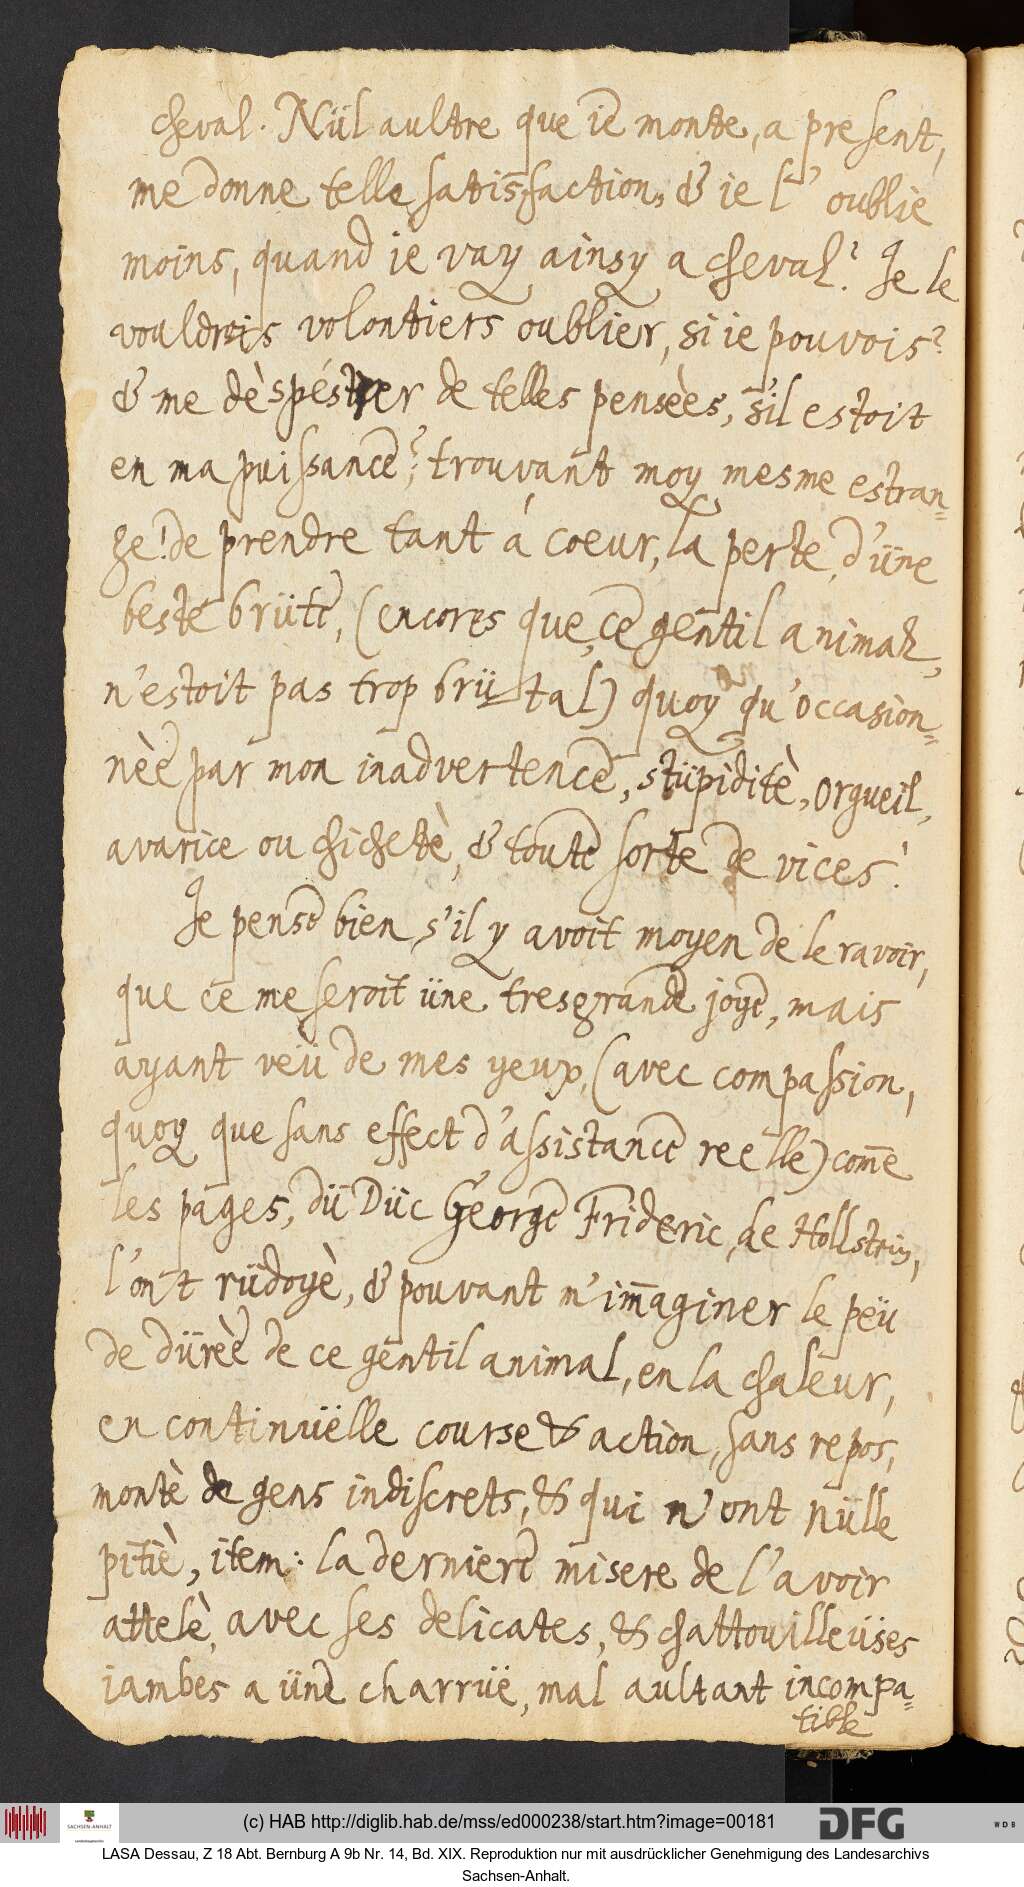 cheval. Nül aultre que ie monte, a present,
me donne telle satisfaction, & ie l' oublie
moins, quand ie vay ainsy a cheval? Je le
vouldrois volontiers oublier, si ie pouvois?
& me dèspéstrer de telles pensèes, s'il estoit
en ma puissance? trouvant moy mesme estran=
ge! de prendre tant á coeur, la perte, d'üne
beste brüte, (encores que, ce gentil animal,
n'estoit pas trop brütal) quoy qu'occasion=
nèe par mon inadvertence, stüpiditè, orgueil,
avarice ou chichetè, & toute sorte de vices!
Je pense bien, s'il y avoit moyen de le ravoir,
que ce me seroit üne tresgrande joye, mais
ayant veü de mes yeux, (avec compassion,
quoy que sans effect d'assistance reelle) com̅e
les pages, dü Düc George Frideric, de Hollstein,
l'ont rüdoyè, & pouvant m'im̅aginer le peü
de dürèe de ce gentil animal, en la chaleur,
en continüëlle course & action, sans repos,
montè de gens indiscrets, & qui n'ont nülle
pitiè, item: la derniere misere de l'avoir
attelè, avec ses delicates, & chattouilleüses
iambes a üne charrüe, mal aultant incompa=
tible
(c) HAB http://diglib.hab.de/mss/ed000238/start.htm?image=00181
SACHSEN-ANHALT
DFG
WDB
LASA Dessau, Z 18 Abt. Bernburg A 9b Nr. 14, Bd. XIX. Reproduktion nur mit ausdrücklicher Genehmigung des Landesarchivs
Sachsen-Anhalt.